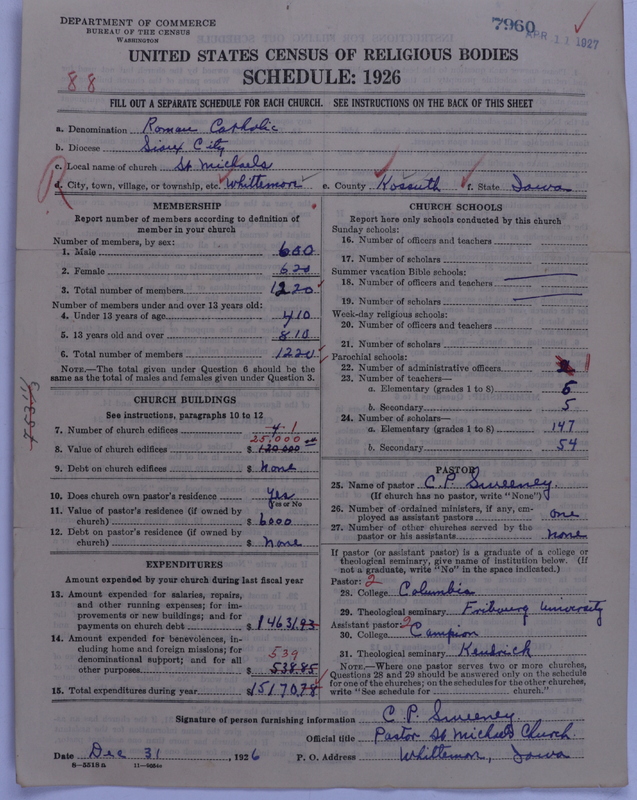 DEPARTMENT OF COMMERCE
BUREAU OF THE CENSUS
WASHINGTON
7960
APR 11 1927
UNITED STATES CENSUS OF RELIGIOUS BODIES
SCHEDULE: 1926
88
FILL OUT A SEPARATE SCHEDULE FOR EACH CHURCH. SEE INSTRUCTIONS ON THE BACK OF THIS SHEET
a. Denomination Roman Catholic
b. Diocese Sioux City
c. Local name of church St Michaels
d. City, town, village, or township, etc. Whittemore e. County Kossuth f. State Iowa
MEMBERSHIP
Report number of members according to definition of member in your church
Number of members, by sex:
1. Male 600
2. Female 620
3. Total number of members 1220
Number of members under and over 13 years old:
4. Under 13 years of age 410
5. 13 years old and over 810
6. Total number of members 1220
NOTE.—The total given under Question 6 should be the same as the total of males and females given under Question 3.
CHURCH BUILDINGS
See instructions, paragraphs 10 to 12
7. Number of church edifices 4 1
25,000
8. Value of church edifices $ 120000
9. Debt on church edifices $ None
10. Does church own pastor's residence Yes
Yes or No
11. Value of pastor's residence (if owned by church) $ 6000
12. Debt on pastor's residence (if owned by church) $ None
EXPENDITURES
Amount expended by your church during last fiscal year
13. Amount expended for salaries, repairs, and other running expenses; for improvements or new buildings; and for payments on church debt $ 14631.93
14. Amount expended for benevolences, including home and foreign missions; for denominational support; and for all other purposes
539
$ 538.85
15. Total expenditures during year $ 15170.78
CHURCH SCHOOLS
Report here only schools conducted by this church
Sunday schools:
16. Number of officers and teachers
17. Number of scholars
Summer vacation Bible schools:
18. Number of officers and teachers
19. Number of scholars
Week-day religious schools:
20. Number of officers and teachers
21. Number of scholars
Parochial schools:
22. Number of administrative officers 1
23. Number of teachers—
a. Elementary (grades 1 to 8) 5
b. Secondary 5
24. Number of scholars—
a. Elementary (grades 1 to 8) 147
b. Secondary 54
PASTOR
25. Name of pastor C. P. Sweeney
(If church has no pastor, write "None")
26. Number of ordained ministers, if any, employed as assistant pastors one
27. Number of other churches served by the pastor or his assistants none
If pastor (or assistant pastor) is a graduate of a college or theological seminary, give name of institution below. (If not a graduate, write "No" in the space indicated.)
Pastor: 2
28. College Columbia
29. Theological seminary Fribourg University
Assistant pastor: 2
30. College Campion
31. Theological seminary Kendrick
NOTE.—Where one pastor serves two or more churches, Questions 28 and 29 should be answered only on the schedule for one of the churches; on the schedules for the other churches, write "See schedule for church."
Signature of person furnishing information C. P. Sweeney
Official title Pastor St Michaels Church.
Date Dec 31, 1926 P. O. Address Whittemore, Iowa
8—5518a 11—9654c